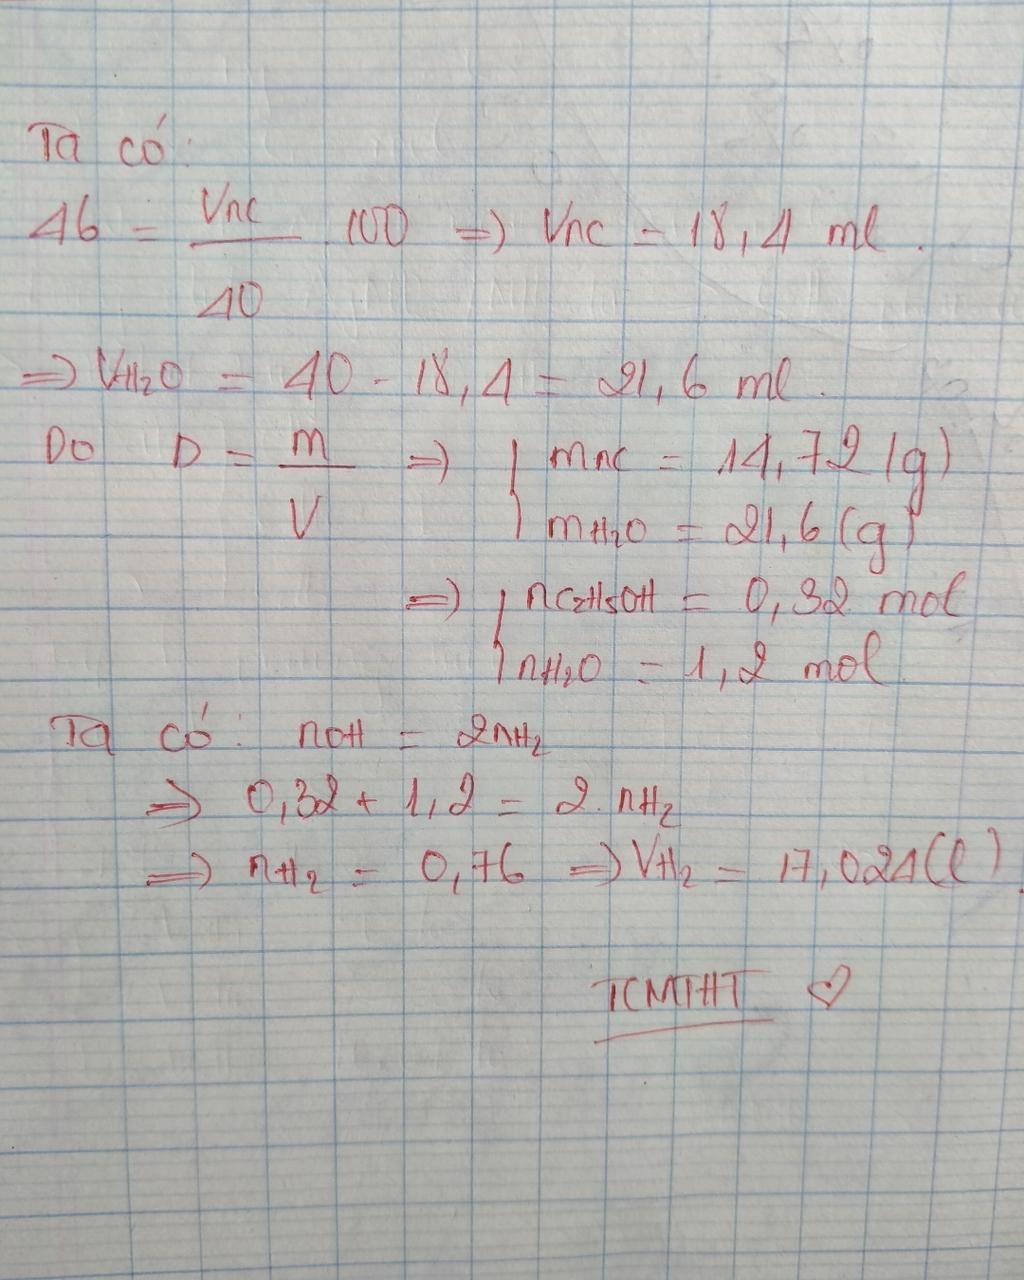 Ta có:
46 = Vnc/40 . 100 => Vnc = 18,4 ml.
=> VH2O = 40 - 18,4 = 21,6 ml.
Do D = m/V => { mnc = 14,72 (g)
mH2O = 21,6 (g)
=> { nC2H5OH = 0,32 mol
nH2O = 1,2 mol
Ta có: nOH = 2nH2
=> 0,32 + 1,2 = 2. nH2
=> nH2 = 0,76 => VH2 = 17,024 (l).
TCMTHT ♡